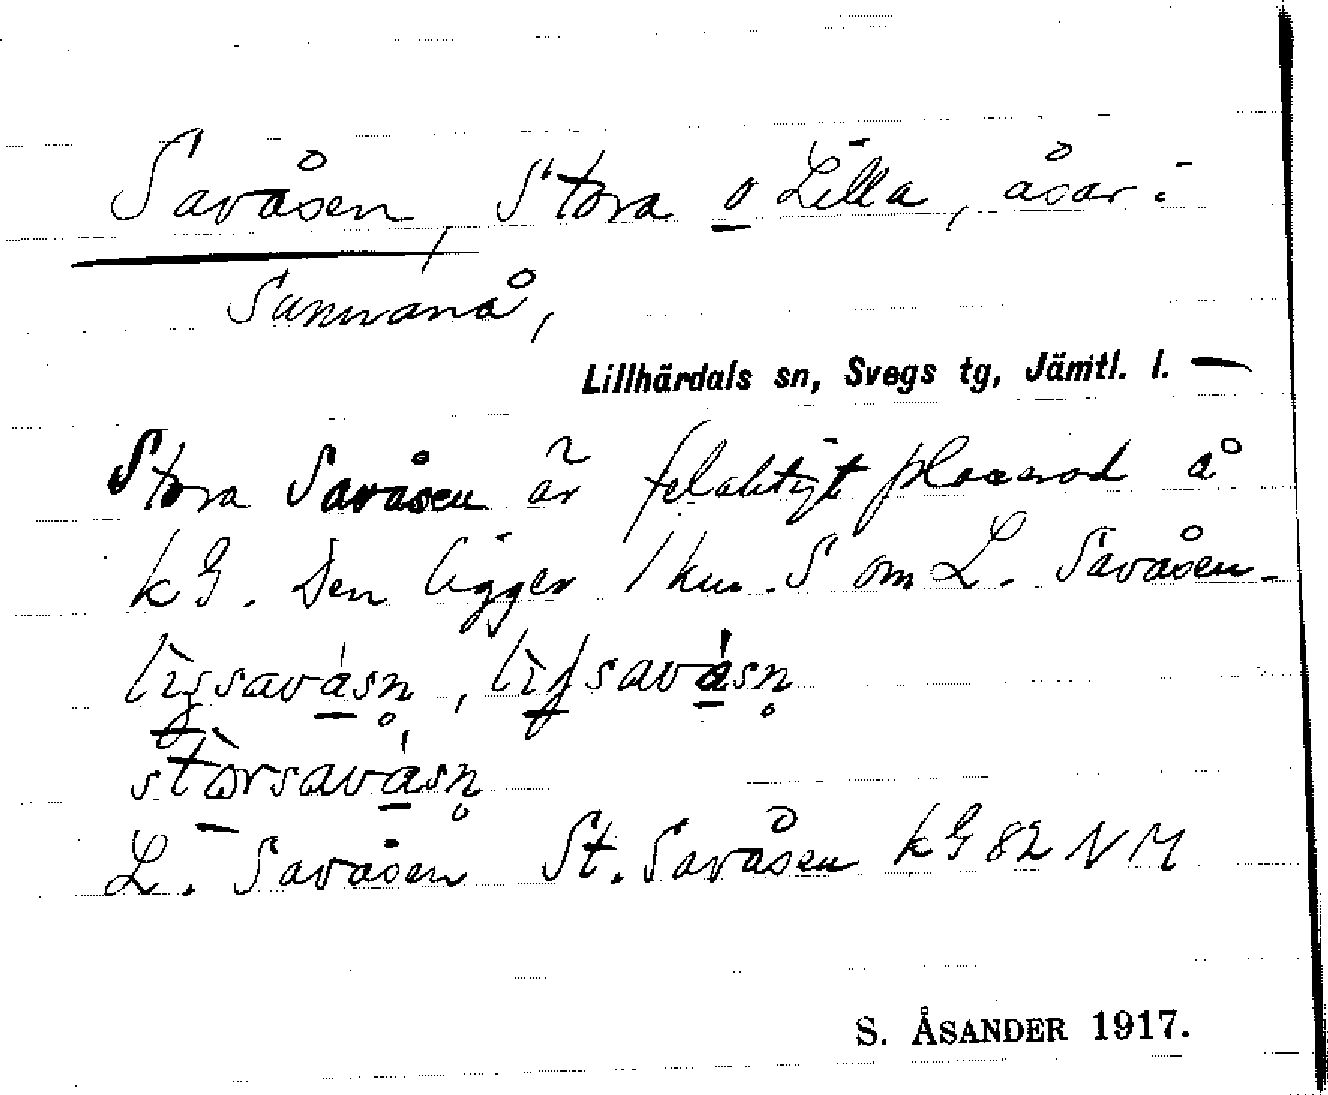 Savåsen, Stora o Lilla, åsar i
Sunnanå,
Lillhärdals sn, Svegs tg, Jämtl. l. —
Stora Savåsen är felaktigt placerad å
kG. Den ligger 1 km. S om L. Savåsen.
L. Savåsen St. Savåsen kG 82 NM
S. ÅSANDER 1917.